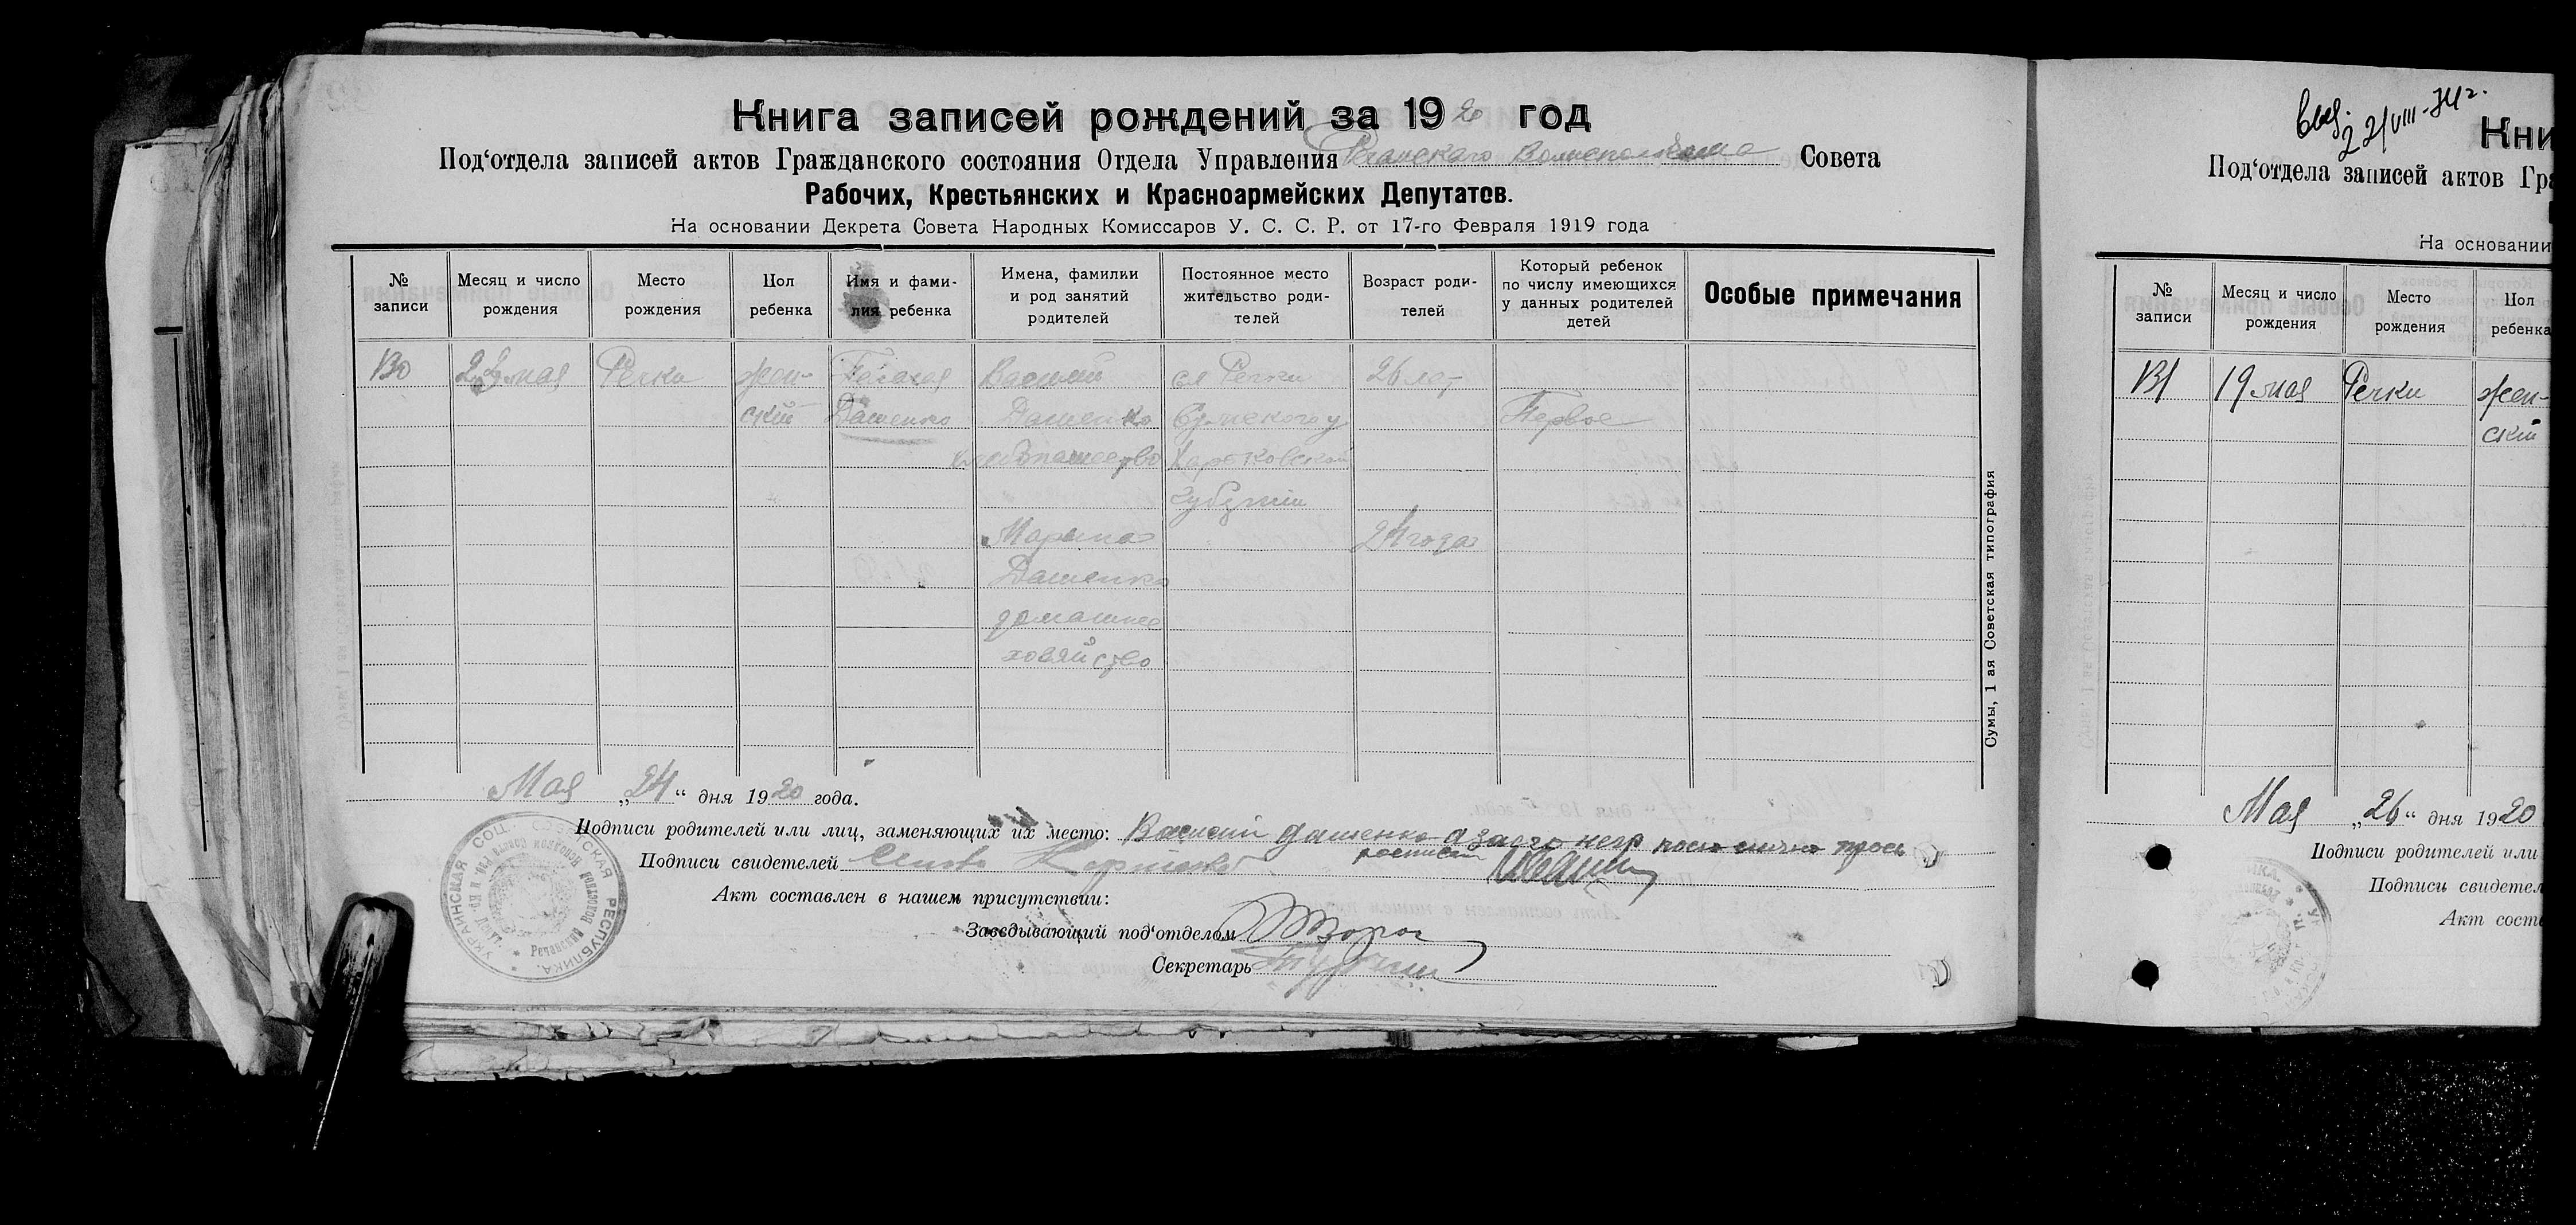 Книга записей рождений за 1920 год
Под'отдела записей актов Гражданского состояния Отдела Управления Речанского Волисполкома Совета
Рабочих, Крестьянских и Красноармейских Депутатов.
На основании Декрета Совета Народных Комиссаров У. С. С. Р. от 17-го Февраля 1919 года
№ записи
Месяц и число рождения
Место рождения
Пол ребенка
Имя и фамилия ребенка
Имена, фамилии и род занятий родителей
Постоянное место жительство родителей
Возраст родителей
Который ребенок по числу имеющихся у данных родителей детей
Особые примечания
130 мая Речки жен- Василий сл Речки 26 лет
ский Дашенко Дашенко Сумского у Первое
хлебопашество Харьковской
губернии
Марина 24 года
Дашенко
домашнее
хозяйство
Сумы, 1 ая Советская типография
Мая „24“ дня 1920 года.
Подписи родителей или лиц, заменяющих их место: Василий Дашенко а за его негр
росписал
Подписи свидетелей
Акт составлен в нашем присутствии:
Заведывающий под'отделом
Секретарь
УКРАИНСКАЯ СОЦ. СОВЕТСКАЯ РЕСПУБЛИКА.
22/VIII-74 г.
Кни
Под'отдела записей актов Гра
На основании
№ записи
Месяц и число рождения
Место рождения
Пол ребенка
131 19 мая Речки жен-
ский
Мая „26“ дня 1920
Подписи родителей или
Подписи свидетел
Акт соста